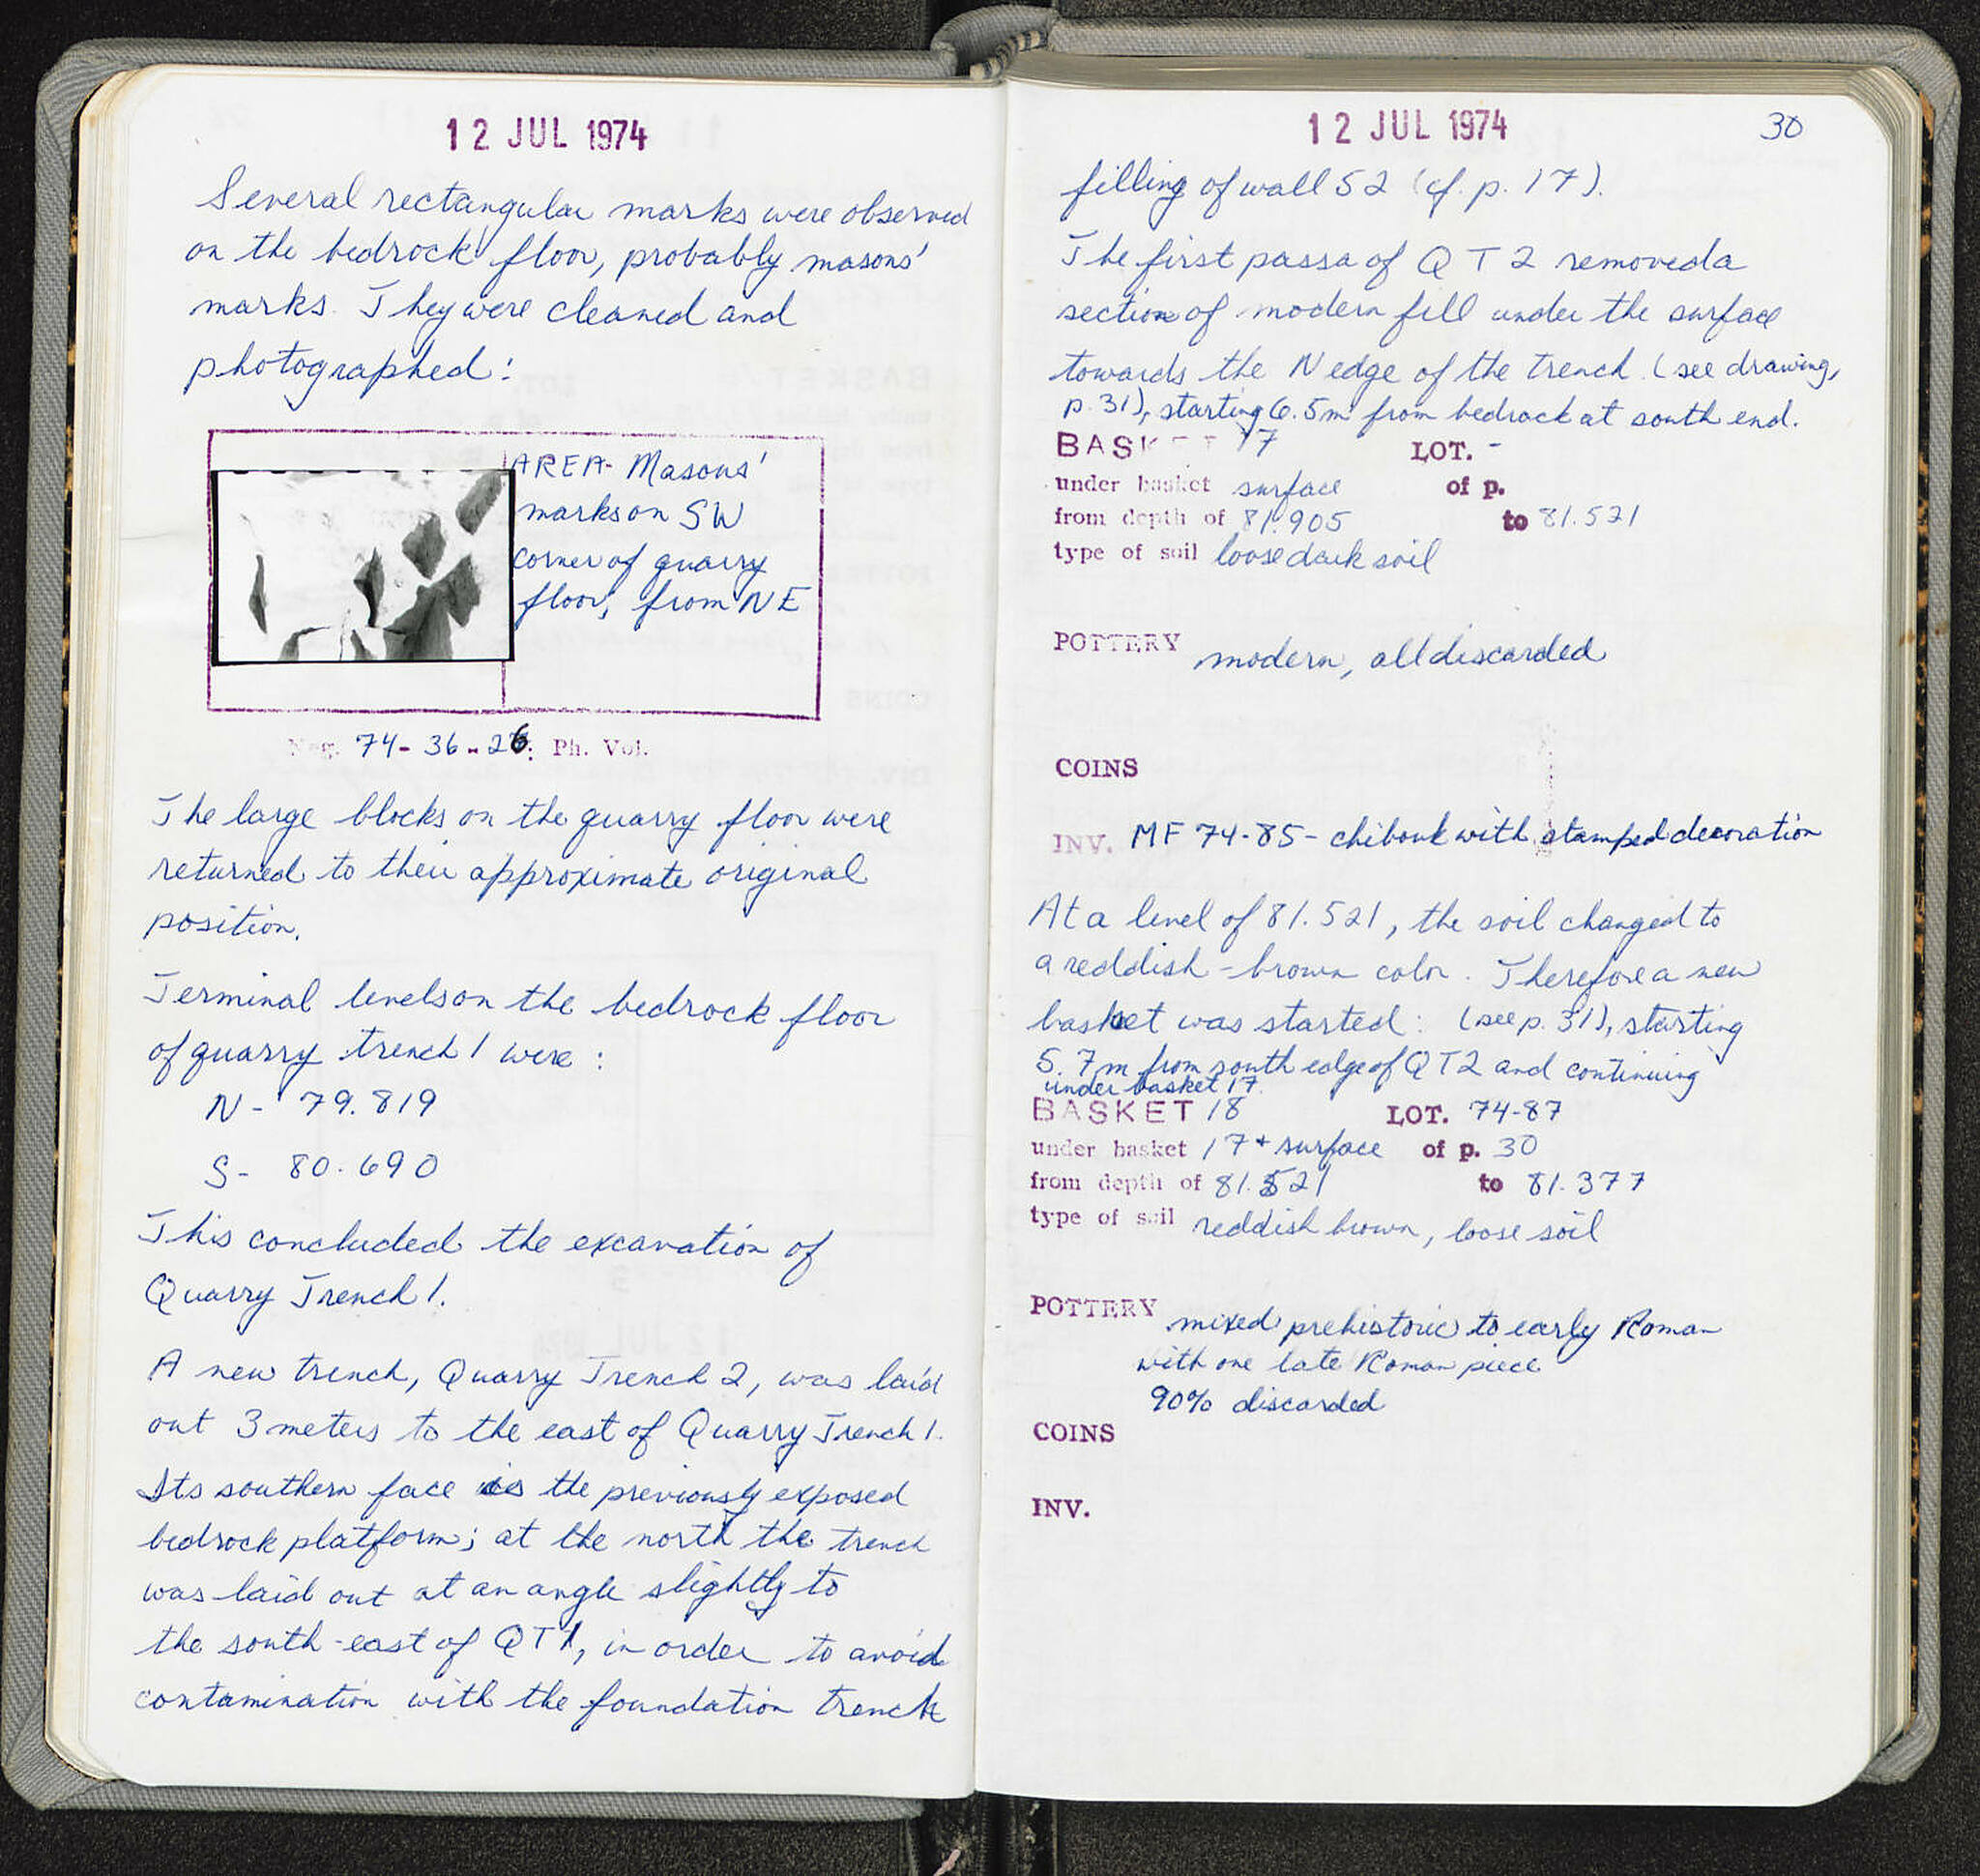 12 JUL 1974
Several rectangular marks were observed
on the bedrock floor, probably masons'
marks. They were cleaned and
photographed:
AREA- Masons'
marks on SW
corner of quarry
floor, from NE
Neg. 74-36-26: Ph. Vol.
The large blocks on the quarry floor were
returned to their approximate original
position.
Terminal levels on the bedrock floor
of quarry trench 1 were:
N- 79.819
S- 80.690
This concluded the excavation of
Quarry Trench 1.
A new trench, Quarry Trench 2, was laid
out 3 meters to the east of Quarry Trench 1.
Its southern face is the previously exposed
bedrock platform; at the north the trench
was laid out at an angle slightly to
the south-east of QT1, in order to avoid
contamination with the foundation trench
12 JUL 1974
30
filling of wall 52 (cf. p. 17).
The first passa of QT2 removed a
section of modern fill under the surface
towards the N edge of the trench (see drawing,
p. 31), starting 6.5m from bedrock at south end.
BASKET 17 LOT. -
under basket surface of p.
from depth of 81.905 to 81.521
type of soil loose dark soil
POTTERY modern, all discarded
COINS
INV. MF 74-85 - chibouk with stamped decoration
At a level of 81.521, the soil changed to
a reddish-brown color. Therefore a new
basket was started: (see p. 31), starting
5.7m from south edge of QT2 and continuing
under basket 17.
BASKET 18 LOT. 74-87
under basket 17 + surface of p. 30
from depth of 81.521 to 81.377
type of soil reddish brown, loose soil
POTTERY mixed prehistoric to early Roman
with one late Roman piece
90% discarded
COINS
INV.